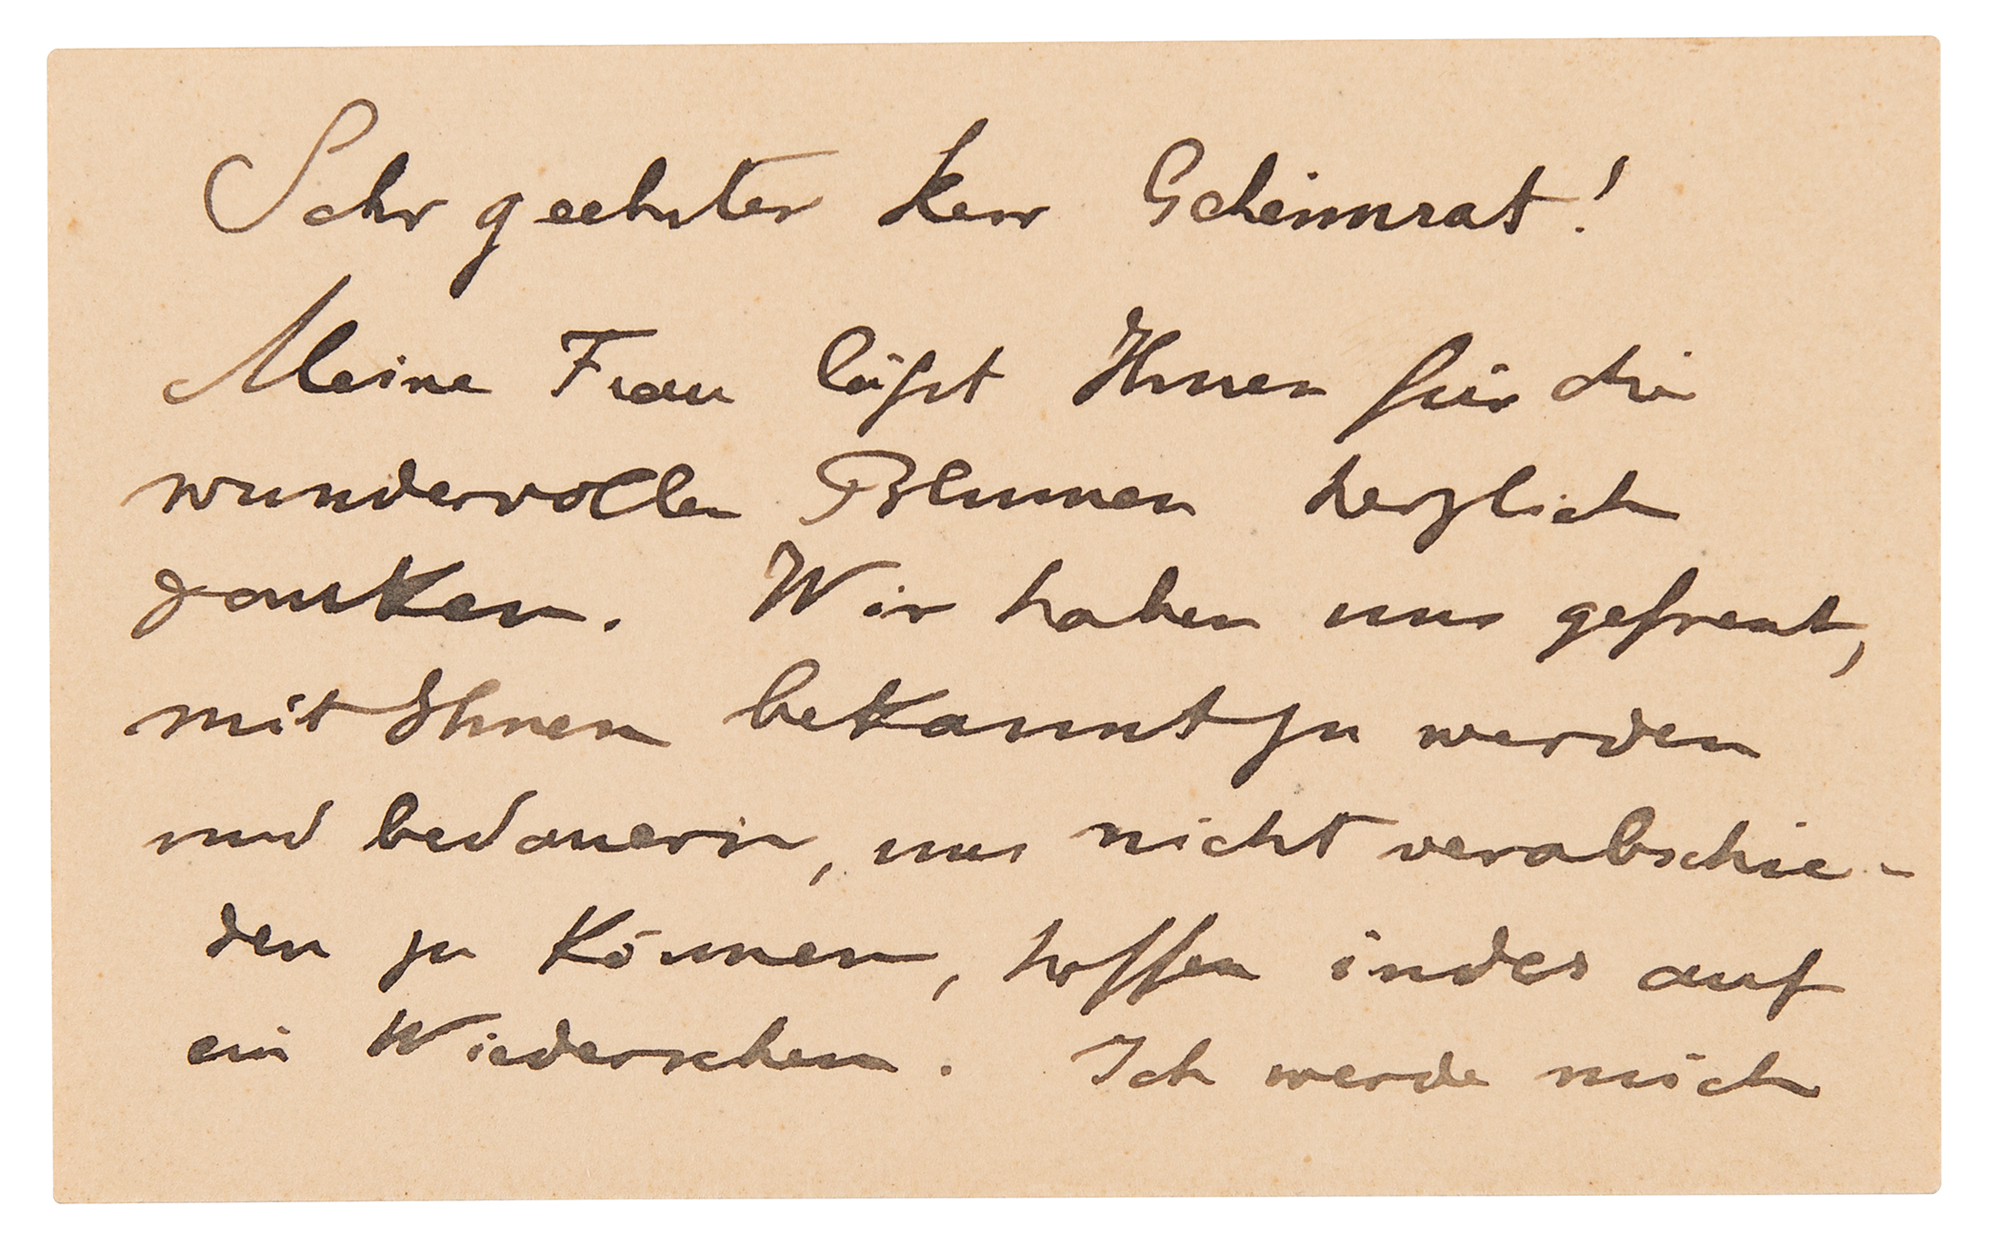 Sehr geehrter Herr Geheimrat!
Meine Frau läßt Ihnen für die
wundervollen Blumen herzlich
danken. Wir haben uns gefreut,
mit Ihnen bekannt zu werden
und bedauern, uns nicht verabschie-
den zu können, hoffen indes auf
ein Wiedersehen. Ich werde mich